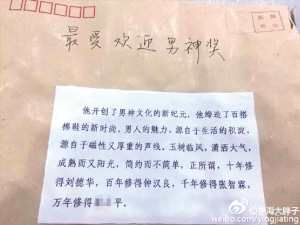 最受欢迎男神奖
他开创了男神文化的新纪元，他缔造了百搭
棉鞋的新时尚。男人的魅力，源自于生活的积淀，
源自于磁性又厚重的声线。玉树临风，潇洒大气，
成熟而又阳光，简约而不简单，正所谓，十年修
得刘德华，百年修得钟汉良，千年修得张智霖，
万年修得 平。
weibo.com/yingjiating